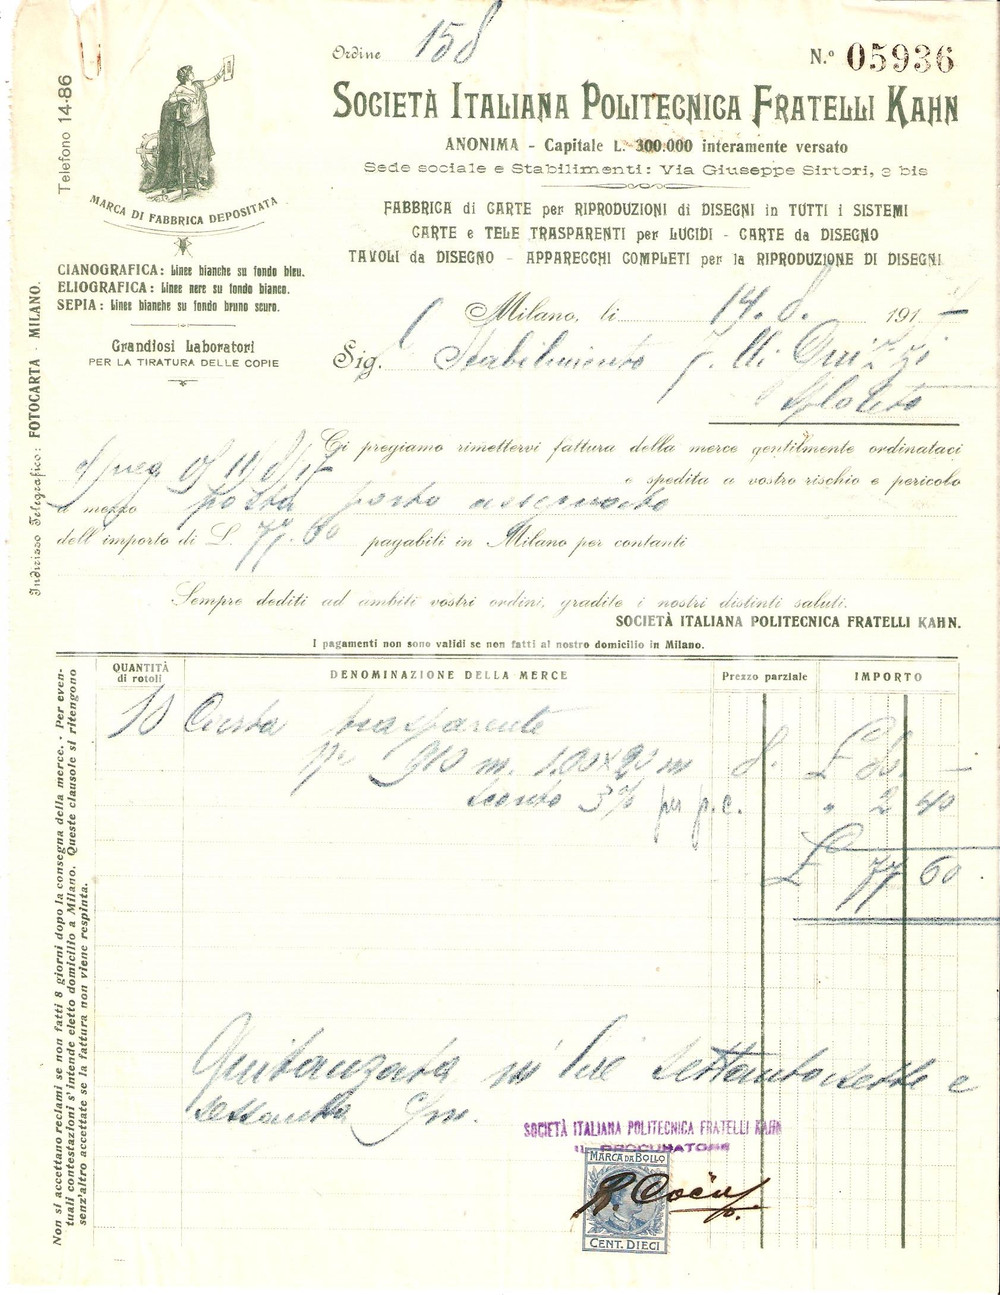 Ordine 158
N.º 05936
Telefono 14-86
SOCIETÀ ITALIANA POLITECNICA FRATELLI KAHN
ANONIMA - Capitale L. 300.000 interamente versato
Sede sociale e Stabilimenti: Via Giuseppe Sirtori, 2 bis
MARCA DI FABBRICA DEPOSITATA
FABBRICA di CARTE per RIPRODUZIONI di DISEGNI in TUTTI i SISTEMI
CARTE e TELE TRASPARENTI per LUCIDI - CARTE da DISEGNO
TAVOLI da DISEGNO - APPARECCHI COMPLETI per la RIPRODUZIONE DI DISEGNI
CIANOGRAFICA: Linee bianche su fondo bleu.
ELIOGRAFICA: Linee nere su fondo bianco.
SEPIA: Linee bianche su fondo bruno scuro.
Grandiosi Laboratori
PER LA TIRATURA DELLE COPIE
Indirizzo Telegrafico: FOTOCARTA - MILANO.
Milano, li 14. 8. 1917
Sig. Stabilimento F.lli
Ci pregiamo rimettervi fattura della merce gentilmente ordinataci
e spedita a vostro rischio e pericolo
a mezzo posta porto assegnato
dell'importo di L. 77.60 pagabili in Milano per contanti
Sempre dediti ad ambiti vostri ordini, gradite i nostri distinti saluti.
SOCIETÀ ITALIANA POLITECNICA FRATELLI KAHN.
I pagamenti non sono validi se non fatti al nostro domicilio in Milano.
QUANTITÀ di rotoli DENOMINAZIONE DELLA MERCE Prezzo parziale IMPORTO
10 Carta trasparente
910 m. 1.00 x 20 m 8. £ 80. —
Sconto 3% per p.c. " 2 40
£ 77 60
Non si accettano reclami se non fatti 8 giorni dopo la consegna della merce. - Per even-
tuali contestazioni s'intende eletto domicilio a Milano. Queste clausole si ritengono
senz'altro accettate se la fattura non viene respinta.
Quitanzata in lire settantasette e
sessanta cm.
SOCIETÀ ITALIANA POLITECNICA FRATELLI KAHN
IL PROCURATORE
MARCA DA BOLLO
CENT. DIECI